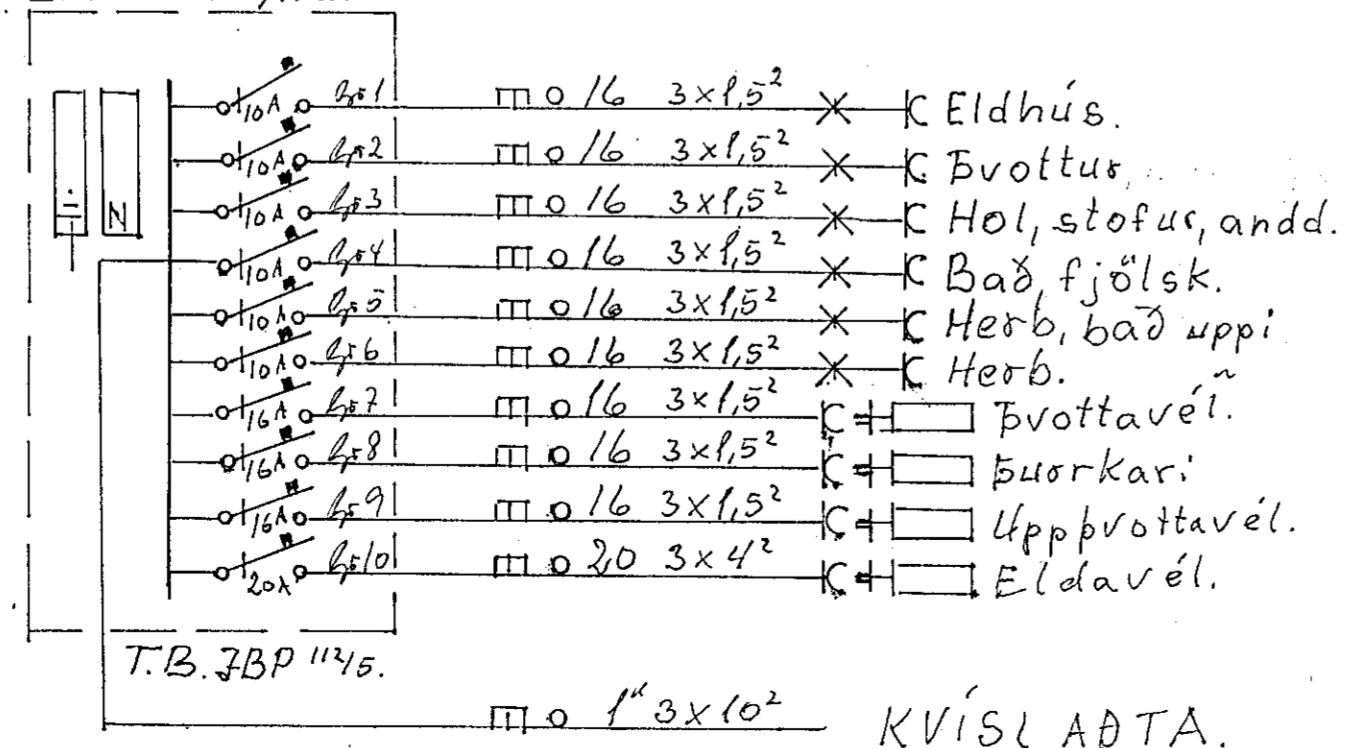 10A Gr 1 16 3×1,5² Eldhús.
10A Gr 2 16 3×1,5² Þvottur,
N 10A Gr 3 16 3×1,5² Hol, stofur, andd.
10A Gr 4 16 3×1,5² Bað, fjölsk.
10A Gr 5 16 3×1,5² Herb, bað uppi
10A Gr 6 16 3×1,5² Herb.
16A Gr 7 16 3×1,5² Þvottavél.
16A Gr 8 16 3×1,5² Þurrkari
16A Gr 9 16 3×1,5² Uppþvottavél.
20A Gr 10 20 3×4² Eldavél.
T.B.
1" 3×10² KVÍSL AÐTA.